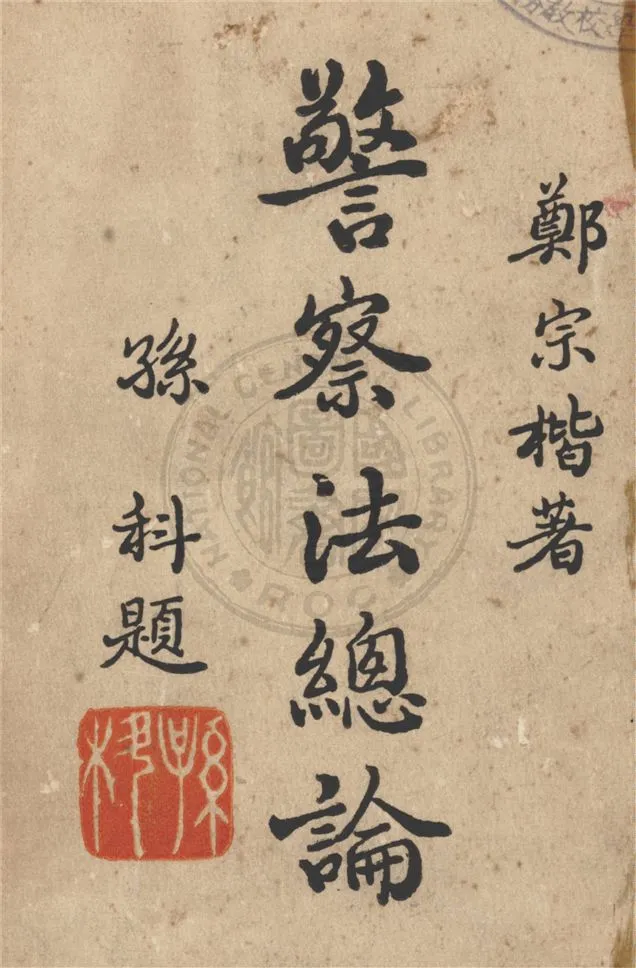 鄭宗楷著
警察法總論
孫科題
NATIONAL CENTRAL LIBRARY
R.O.C.